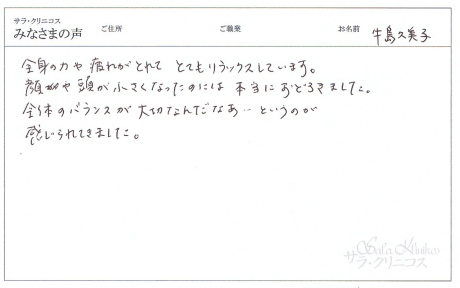 サラ・クリニコス
みなさまの声 ご住所 ご職業 お名前 牛島久美子
全身の力や疲れがとれて とてもリラックスしています。
顔や頭が小さくなったのには 本当におどろきました。
全体のバランスが大切なんだなあ…というのが
感じられてきました。
Sala Klinikos
サラ・クリニコス